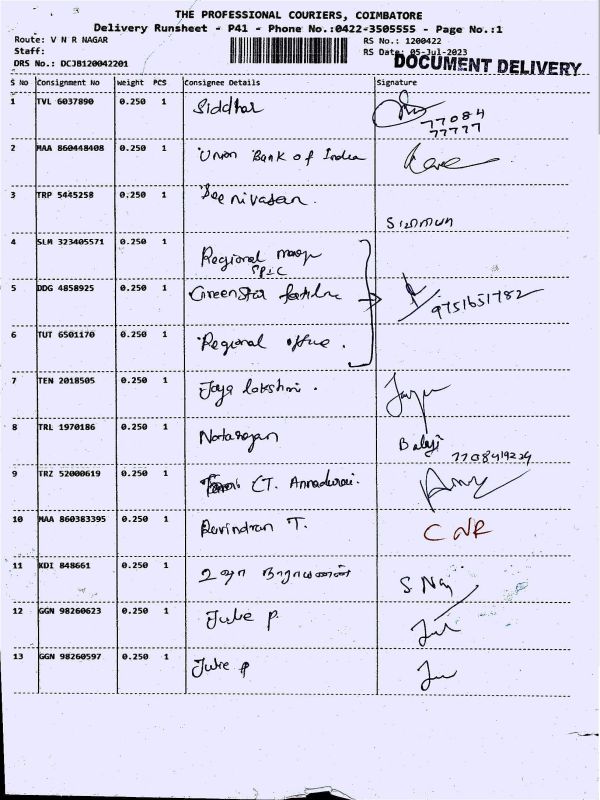 THE PROFESSIONAL COURIERS, COIMBATORE
Delivery Runsheet - P41 - Phone No.:0422-3505555 - Page No.:1
Route: V N R NAGAR
RS No.: 1200422
Staff:
RS Date: 05-Jul-2023
DRS No.: DCJB120042201
DOCUMENT DELIVERY
S No Consignment No Weight PCS Consignee Details Signature
1 TVL 6037890 0.250 1 Siddhar
77084
77777
2 MAA 860448408 0.250 1 Union Bank of India
3 TRP 5445258 0.250 1 Sreenivasan.
4 SLM 323405571 0.250 1 Regional
SPIC
5 DDG 4858925 0.250 1 GreenStar 9751651782
6 TUT 6501170 0.250 1 Regional office.
7 TEN 2018505 0.250 1 Jaya lakshmi.
8 TRL 1970186 0.250 1 Natarajan Balaji
7708419224
9 TRZ 52000619 0.250 1 (T. Annadurai.
10 MAA 860383395 0.250 1 Ravindran T. CNR
11 KDI 848661 0.250 1 உஷா நாராயணன் S Nay
12 GGN 98260623 0.250 1 Julie P.
13 GGN 98260597 0.250 1 Julie P